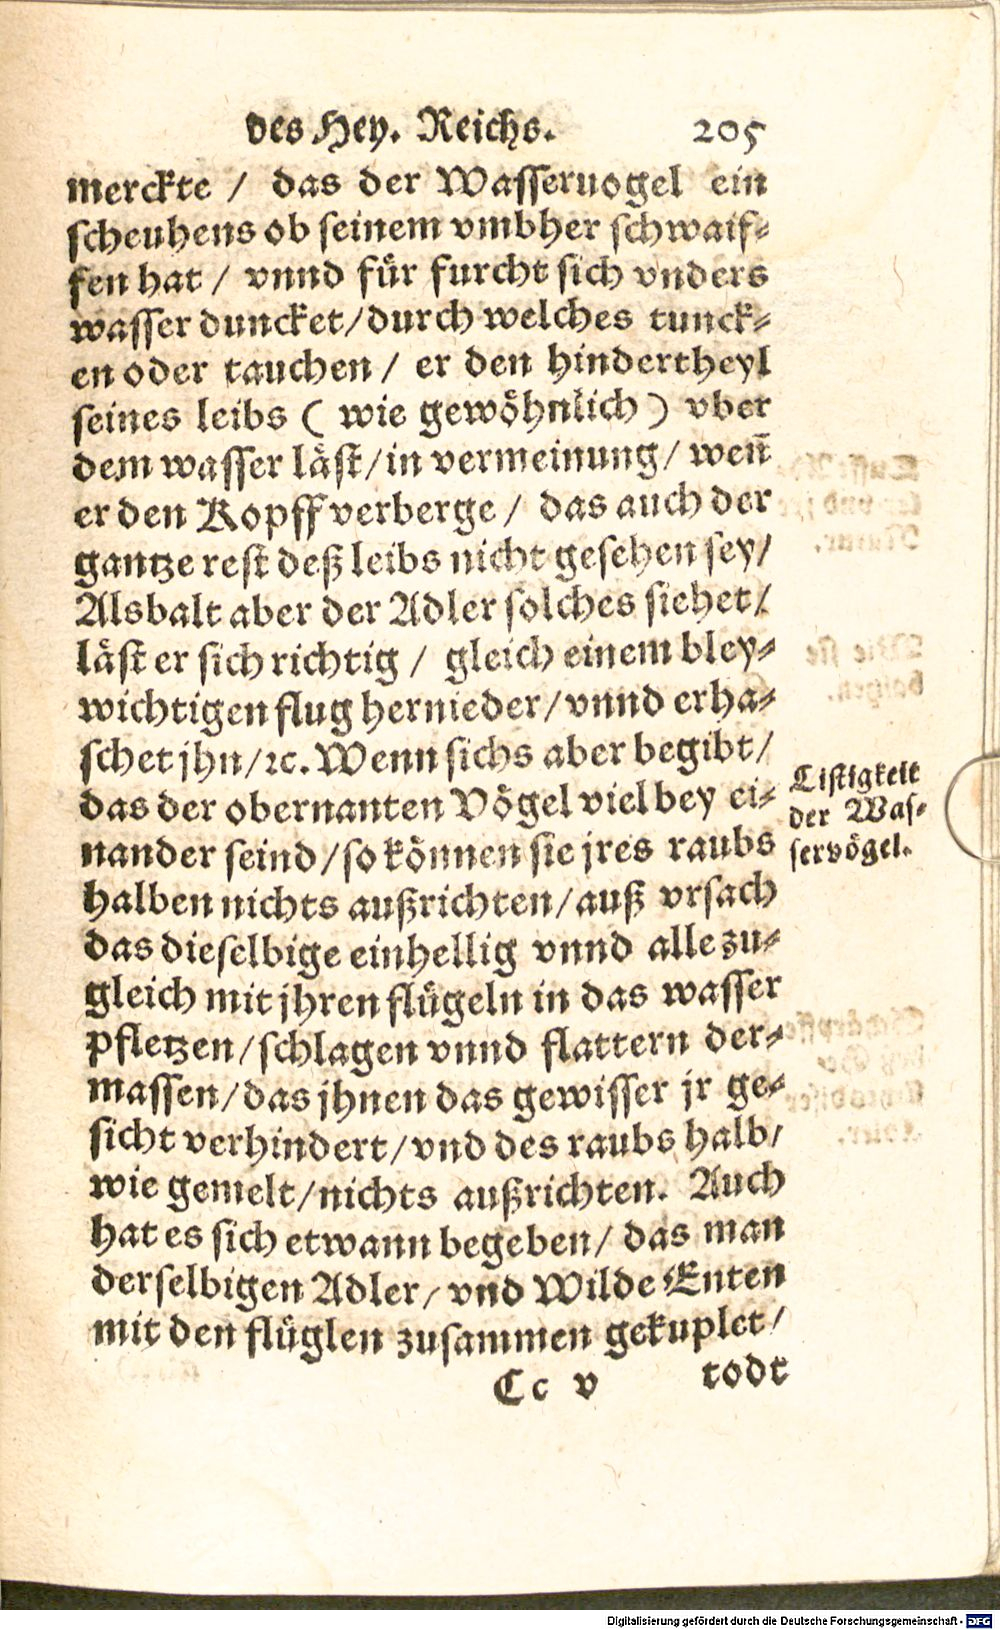 des Hey. Reichs. 205
merckte / das der Wasseruogel ein
scheuhens ob seinem vmbher schwaif-
fen hat / vnnd für furcht sich vnders
wasser duncket/durch welches tunck-
en oder tauchen / er den hindertheyl
seines leibs ( wie gewöhnlich ) vber
dem wasser läst/in vermeinung/ wen̄
er den Kopff verberge / das auch der
gantze rest deß leibs nicht gesehen sey/
Alsbalt aber der Adler solches siehet/
läst er sich richtig / gleich einem bley-
wichtigen flug hernieder/vnnd erha-
schet jhn/ꝛc. Wenn sichs aber begibt/
das der obernanten Vögel viel bey ei-
nander seind/so können sie jres raubs
halben nichts außrichten/auß vrsach
das dieselbige einhellig vnnd alle zu-
gleich mit jhren flügeln in das wasser
pfletzen/schlagen vnnd flattern der-
massen/das jhnen das gewisser jr ge-
sicht verhindert/vnd des raubs halb/
wie gemelt/nichts außrichten. Auch
hat es sich etwann begeben/ das man
derselbigen Adler/ vnd Wilde Enten
mit den flüglen zusammen gekuplet/
Cc v todt
Listigkeit
der Was-
servögel.
Digitalisierung gefördert durch die Deutsche Forschungsgemeinschaft - DFG